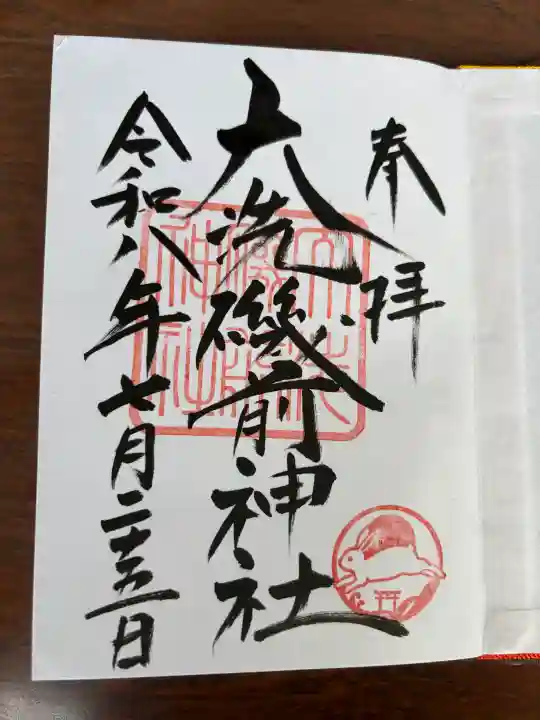 奉拝
大洗磯前神社
令和八年七月二十五日